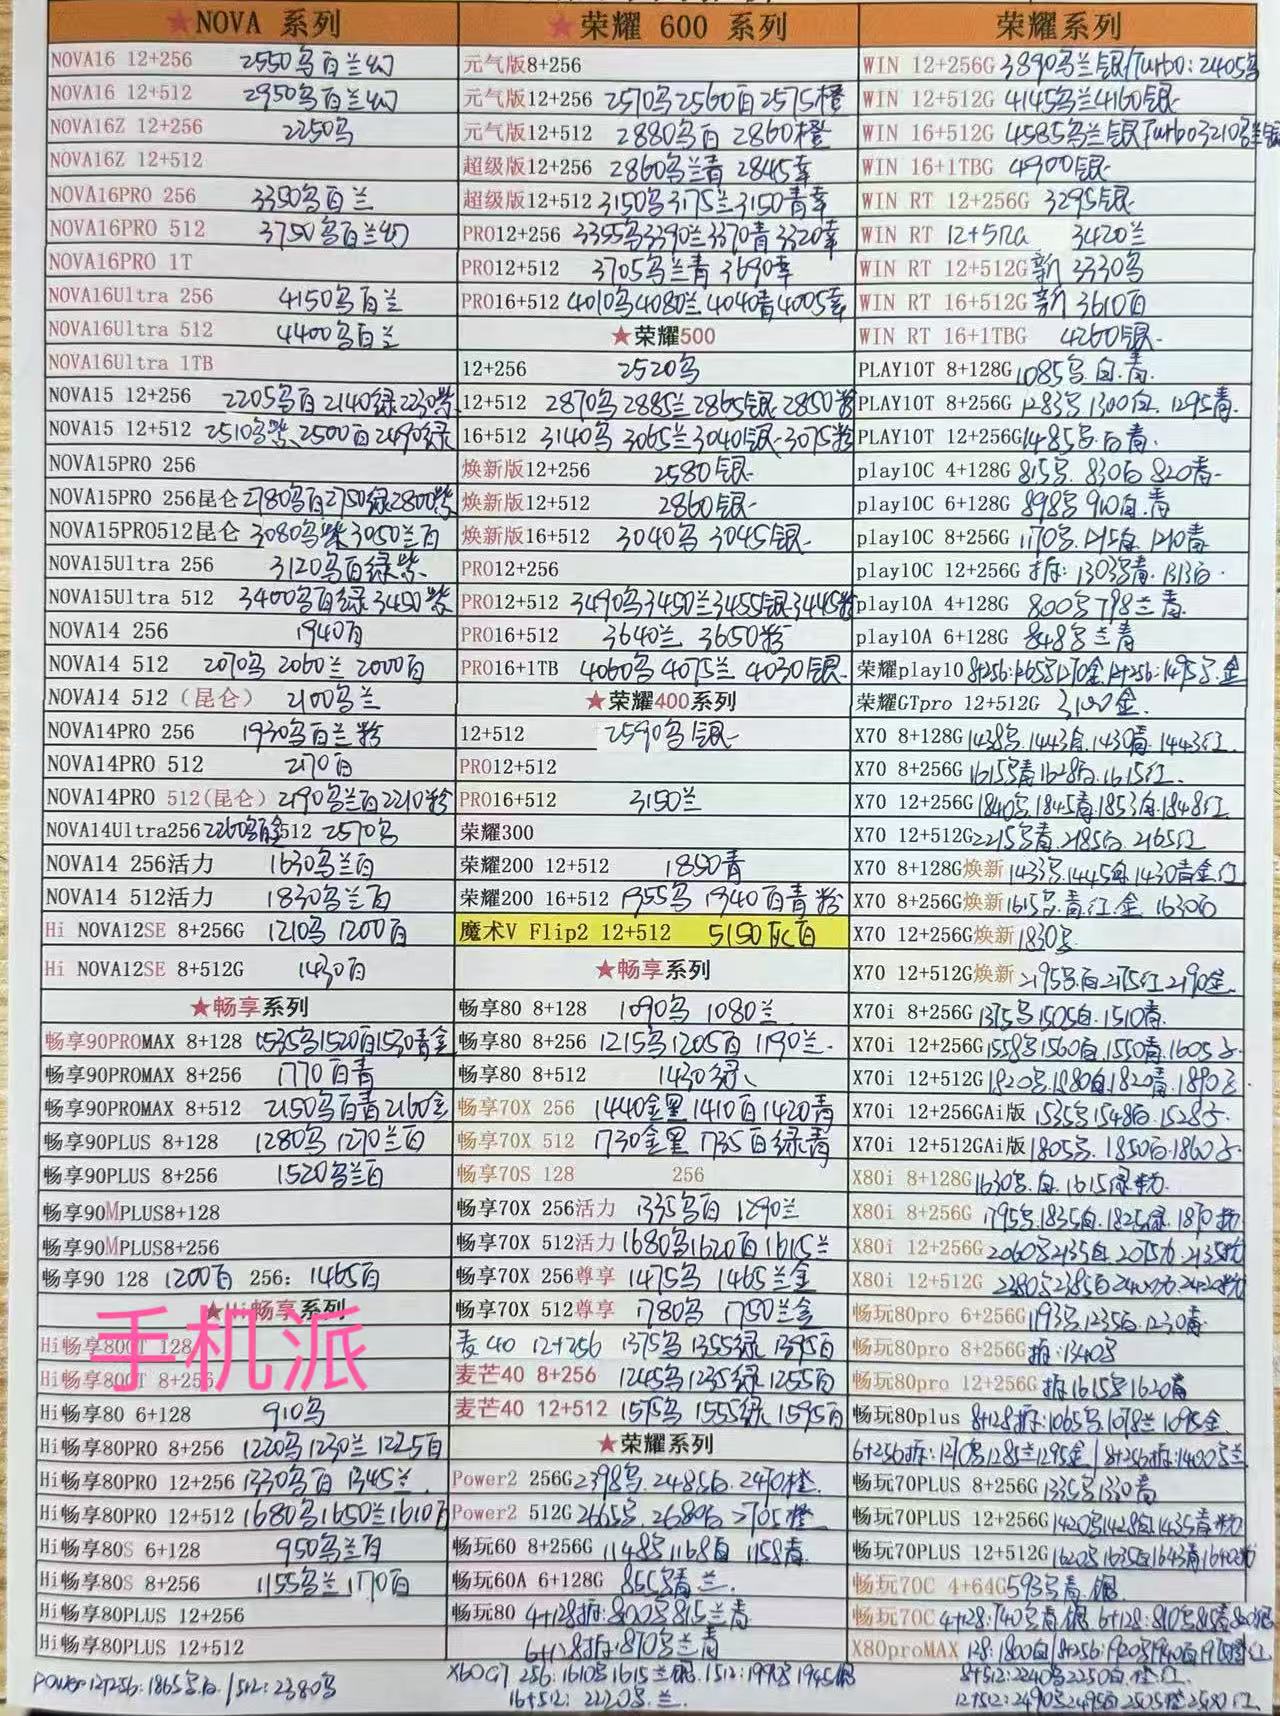 ★NOVA 系列
NOVA16 12+256 2550乌百兰幻
NOVA16 12+512 2950乌百兰幻
NOVA16Z 12+256 2250乌
NOVA16Z 12+512
NOVA16PRO 256 3350乌百兰
NOVA16PRO 512 3750乌百兰幻
NOVA16PRO 1T
NOVA16Ultra 256 4150乌百兰
NOVA16Ultra 512 4400乌百兰
NOVA16Ultra 1TB
NOVA15 12+256 2205乌百2140绿2230紫
NOVA15 12+512 2510乌紫2500百2490绿
NOVA15PRO 256
NOVA15PRO 256昆仑2780乌百2750绿2800紫
NOVA15PRO512昆仑 3080乌紫3050兰百
NOVA15Ultra 256 3120乌百绿紫
NOVA15Ultra 512 3400乌百绿3450紫
NOVA14 256 1940百
NOVA14 512 2070乌 2060兰 2000百
NOVA14 512（昆仑） 2100乌兰
NOVA14PRO 256 1930乌百兰粉
NOVA14PRO 512 2170百
NOVA14PRO 512(昆仑) 2190乌兰百2210粉
NOVA14Ultra256 2260乌百金512 2570乌
NOVA14 256活力 1630乌兰百
NOVA14 512活力 1830乌兰百
Hi NOVA12SE 8+256G 1210乌 1200百
Hi NOVA12SE 8+512G 1430百
★畅享系列
畅享90PROMAX 8+128 1535乌1520百1530青金
畅享90PROMAX 8+256 1770百青
畅享90PROMAX 8+512 2150乌百青2160金
畅享90PLUS 8+128 1280乌 1270兰百
畅享90PLUS 8+256 1520乌兰百
畅享90MPLUS8+128
畅享90MPLUS8+256
畅享90 128 1200百 256: 1465百
★Hi畅享系列
手机派
Hi畅享80GT 128
Hi畅享80GT 8+256
Hi畅享80 6+128 910乌
Hi畅享80PRO 8+256 1220乌1230兰 1225百
Hi畅享80PRO 12+256 1330乌百 1345兰
Hi畅享80PRO 12+512 1680乌1650兰1610百
Hi畅享80S 6+128 950乌兰百
Hi畅享80S 8+256 1155乌兰1170百
Hi畅享80PLUS 12+256
Hi畅享80PLUS 12+512
Power12+256:1865乌白/512:2380乌
★荣耀 600 系列
元气版8+256
元气版12+256 2570乌2560百2575橙
元气版12+512 2880乌百 2860橙
超级版12+256 2860乌兰青 2845幸
超级版12+512 3150乌3175兰3150青幸
PRO12+256 3355乌3390兰3370青3320幸
PRO12+512 3705乌兰青 3690幸
PRO16+512 4010乌4080兰4040青4005幸
★荣耀500
12+256 2520乌
12+512 2870乌2885兰2865银2850粉
16+512 3140乌 3065兰3040银3075粉
焕新版12+256 2580银
焕新版12+512 2860银
焕新版16+512 3040乌 3045银
PRO12+256
PRO12+512 3490乌3450兰3455银3445粉
PRO16+512 3640兰 3650粉
PRO16+1TB 4060乌 4075兰 4030银
★荣耀400系列
12+512 2590乌银
PRO12+512
PRO16+512 3150兰
荣耀300
荣耀200 12+512 1850青
荣耀200 16+512 1955乌 1940百青粉
魔术V Flip2 12+512 5150灰百
★畅享系列
畅享80 8+128 1090乌 1080兰
畅享80 8+256 1215乌1205百 1190兰
畅享80 8+512 1430绿
畅享70X 256 1440金黑 1410百1420青
畅享70X 512 1730金黑 1735百绿青
畅享70S 128 256
畅享70X 256活力 1335乌百 1290兰
畅享70X 512活力1680乌1620百1615兰
畅享70X 256尊享 1475乌 1465兰金
畅享70X 512尊享 1780乌 1750兰金
麦40 12+256 1375乌1355绿1395百
麦芒40 8+256 1245乌1235绿1255百
麦芒40 12+512 1575乌 1555绿1595百
★荣耀系列
Power2 256G2398乌.2485白.2470橙
Power2 512G2665乌.2680白2705橙
畅玩60 8+256G 1148乌1168白 1158青
畅玩60A 6+128G 855乌青兰
畅玩80 4+128拆:800乌815兰青
6+128拆:870乌兰青
X60GT 256:1610乌1615兰银.1512:1990乌1945银
16+512: 2220乌.兰.
荣耀系列
WIN 12+256G 3890乌兰银/Turbo:2405乌
WIN 12+512G 4145乌兰4160银
WIN 16+512G 4585乌兰银Turbo3210乌兰银
WIN 16+1TBG 4900银
WIN RT 12+256G 3295银
WIN RT 12+512G 3420兰
WIN RT 12+512G新 3330乌
WIN RT 16+512G新 3610百
WIN RT 16+1TBG 4260银
PLAY10T 8+128G 1085乌.白.青.
PLAY10T 8+256G 1283乌1300白.1295青.
PLAY10T 12+256G1485乌.白青.
play10C 4+128G 815乌.830白 820青
play10C 6+128G 898乌 910白.青
play10C 8+256G 1170乌.1215白.1210青
play10C 12+256G 拆: 1303乌青.1313白.
play10A 4+128G 800乌798兰青
play10A 6+128G 848乌兰青
荣耀play10 8+256:1265乌1270金.12+256:1495乌.金
荣耀GTpro 12+512G 3100金.
X70 8+128G1438乌.1443白.1430青.1443红
X70 8+256G 1615乌青1628白.1615红.
X70 12+256G1840乌.1845青.1853白.1848红
X70 12+512G2215乌青.2185白.2165红
X70 8+128G焕新1433乌.1445白.1430青金.红
X70 8+256G焕新1615乌.青.红.金 1630白
X70 12+256G焕新1830乌
X70 12+512G焕新2195乌.白2175红2190金
X70i 8+256G 1375乌1505白.1510青.
X70i 12+256G1558乌1560白.1550青.1605子
X70i 12+512G1820乌.1880白.1820青.1890子
X70i 12+256GAi版 1535乌1548白.1528子
X70i 12+512GAi版1805乌.1850白.1860子
X80i 8+128G1630乌.白.1615绿粉.
X80i 8+256G 1795乌.1835白.1825绿.1870粉
X80i 12+256G2060乌2135白.2075力.2135粉
X80i 12+512G 2380乌2385白2400力2420粉
畅玩80pro 6+256G1193乌.1235白.1230青
畅玩80pro 8+256G拆:1340乌
畅玩80pro 12+256G拆1615乌1620青
畅玩80plus 8+128拆:1065乌.1078兰 1095金
6+256拆:1270乌1285兰1295金/8+256拆:1400乌兰
畅玩70PLUS 8+256G1335乌1330青
畅玩70PLUS 12+256G1420乌1428白1435青粉
畅玩70PLUS 12+512G1620乌1635白1643青1640粉
畅玩70C 4+64G593乌青.银
畅玩70C4+128:740乌青银 6+128:810乌815青820银
X80proMAX 128:1800白/8+256:1920乌1940白1970橙红
8+512:2240乌2250白.橙.红
12+512:2490乌2495白2505橙2500红